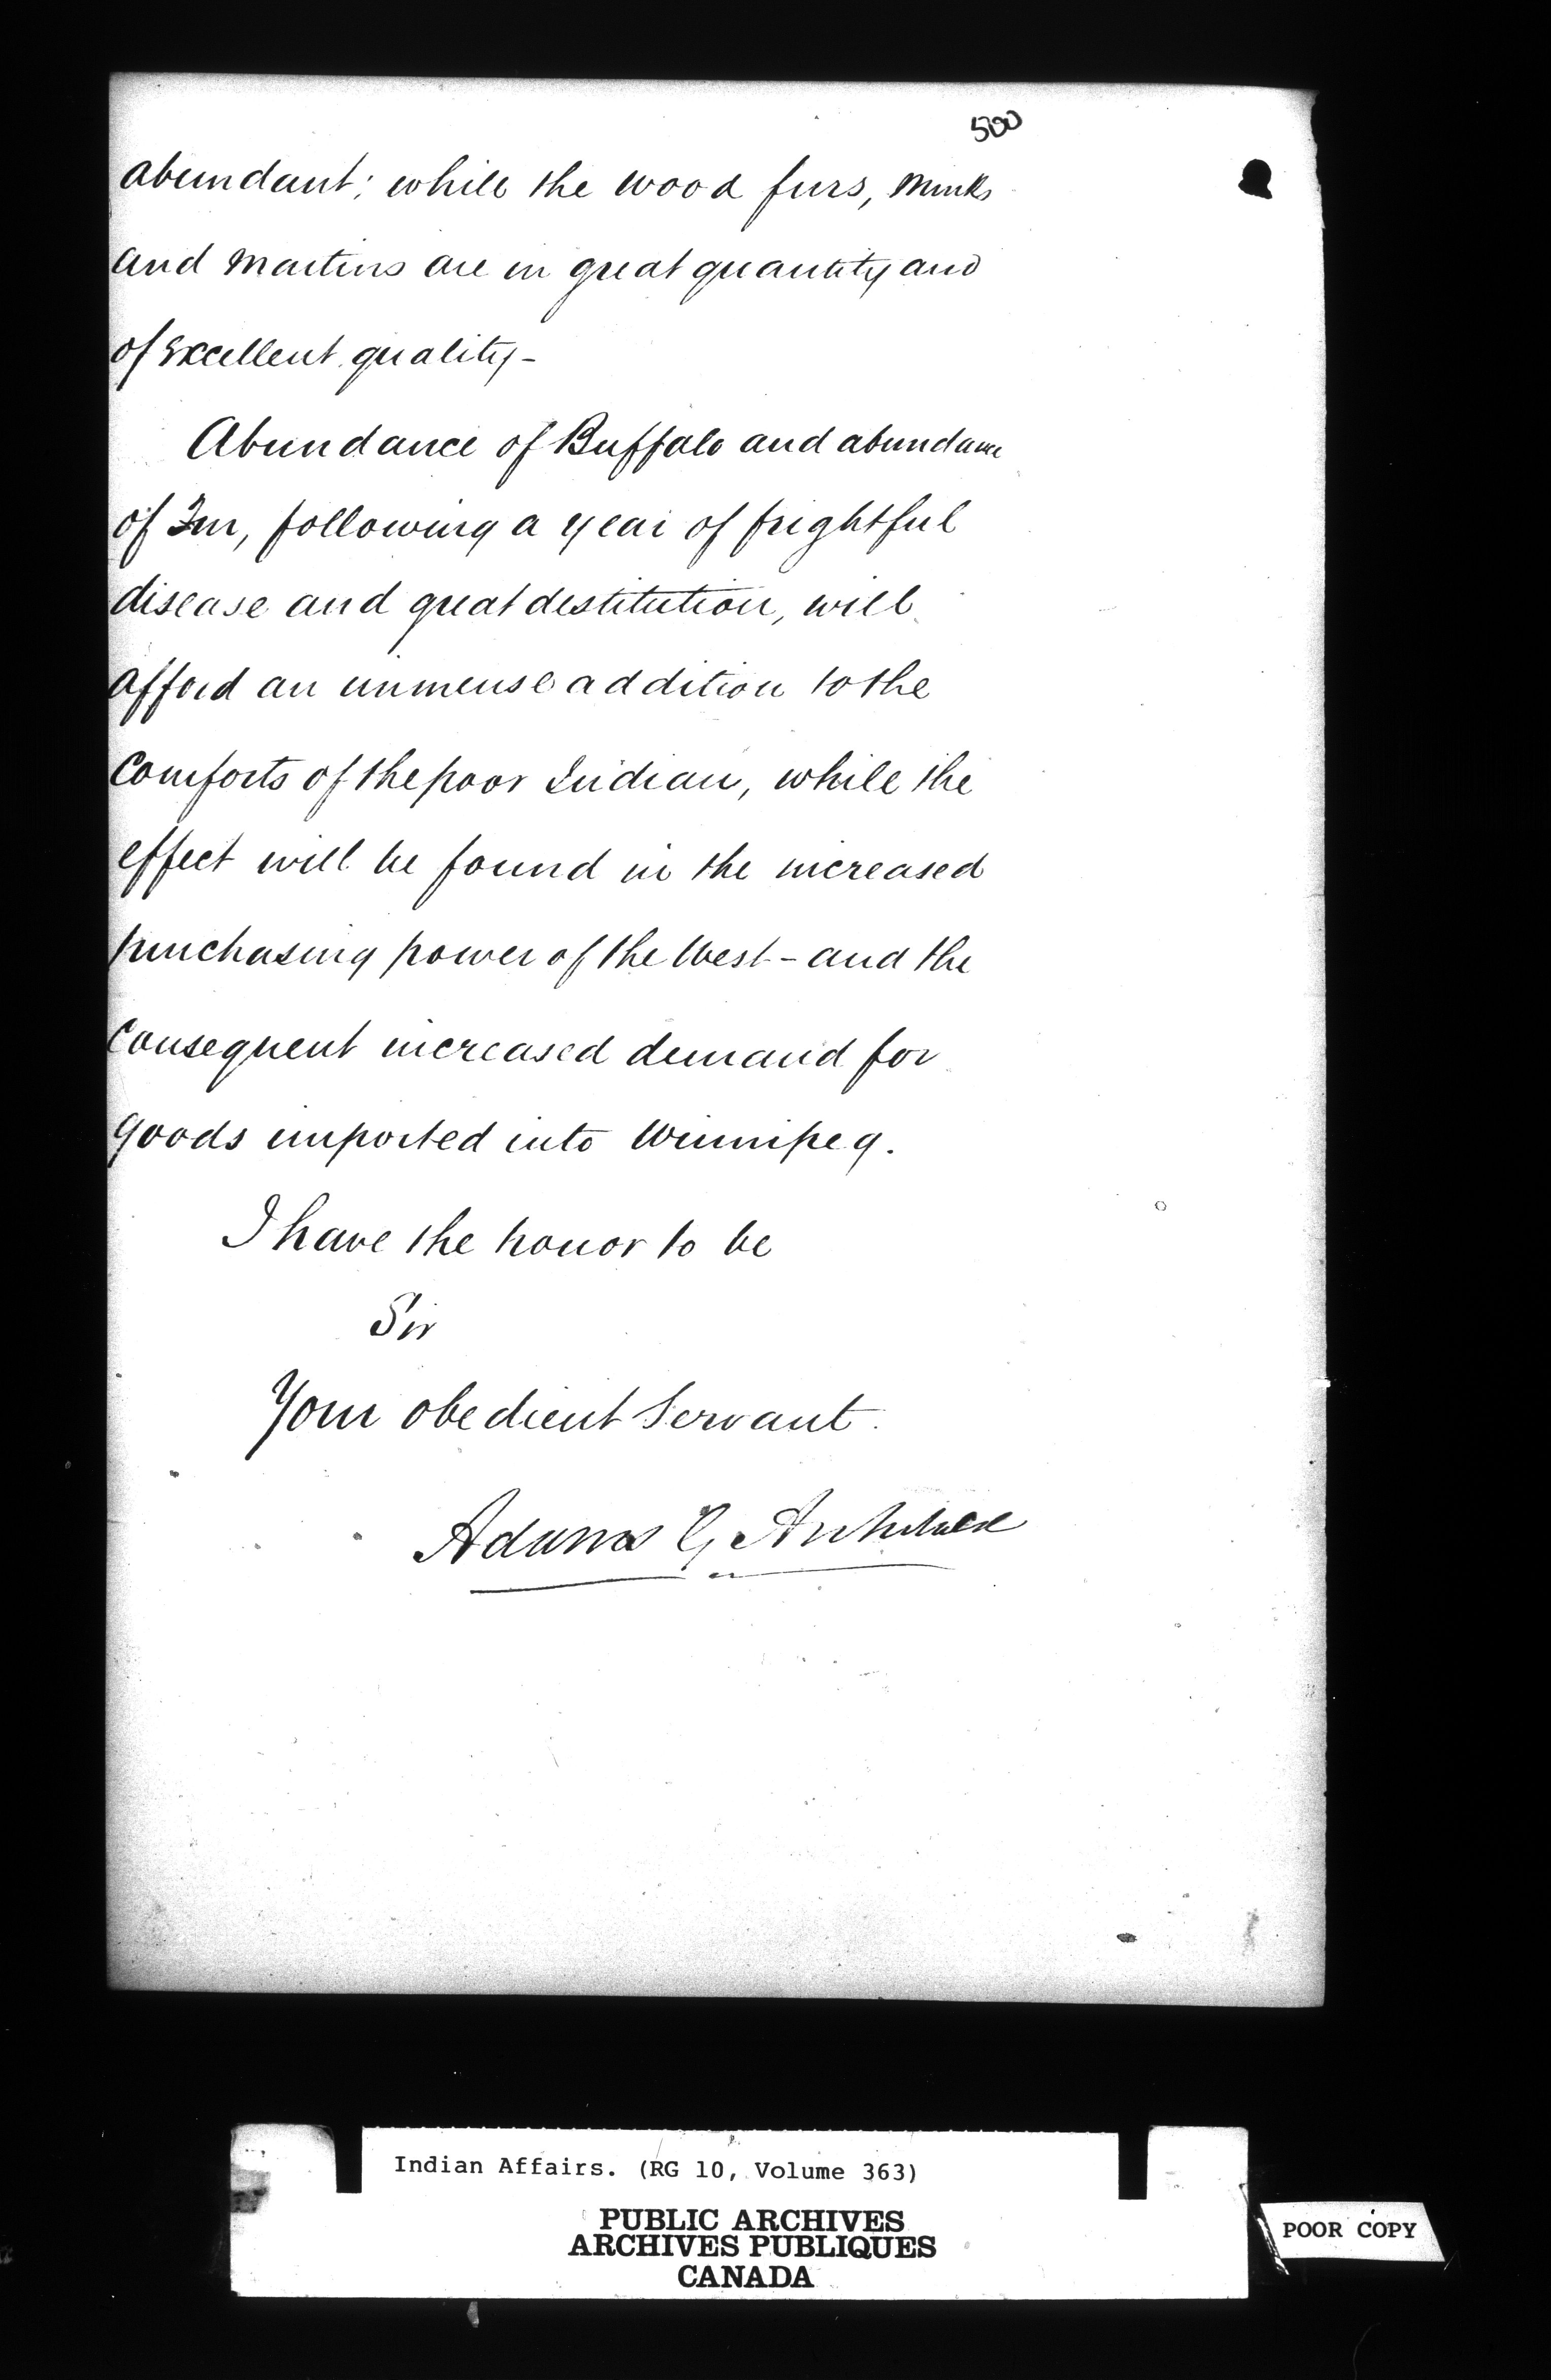 500
abundant; while the wood furs, Minks
and Martins are in great quantity and
of excellent quality-
Abundance of Buffalo and abundance
of Fur, following a year of frightful
disease and great destitution, will
afford an immense addition to the
comforts of the poor Indian, while the
effect will be found in the increased
purchasing power of the West - and the
consequent increased demand for
goods imported into Winnipeg.
I have the honor to be
Sir
Your obedient Servant.
Adams G Archibald
Indian Affairs. (RG 10, Volume 363)
PUBLIC ARCHIVES
ARCHIVES PUBLIQUES
CANADA
POOR COPY